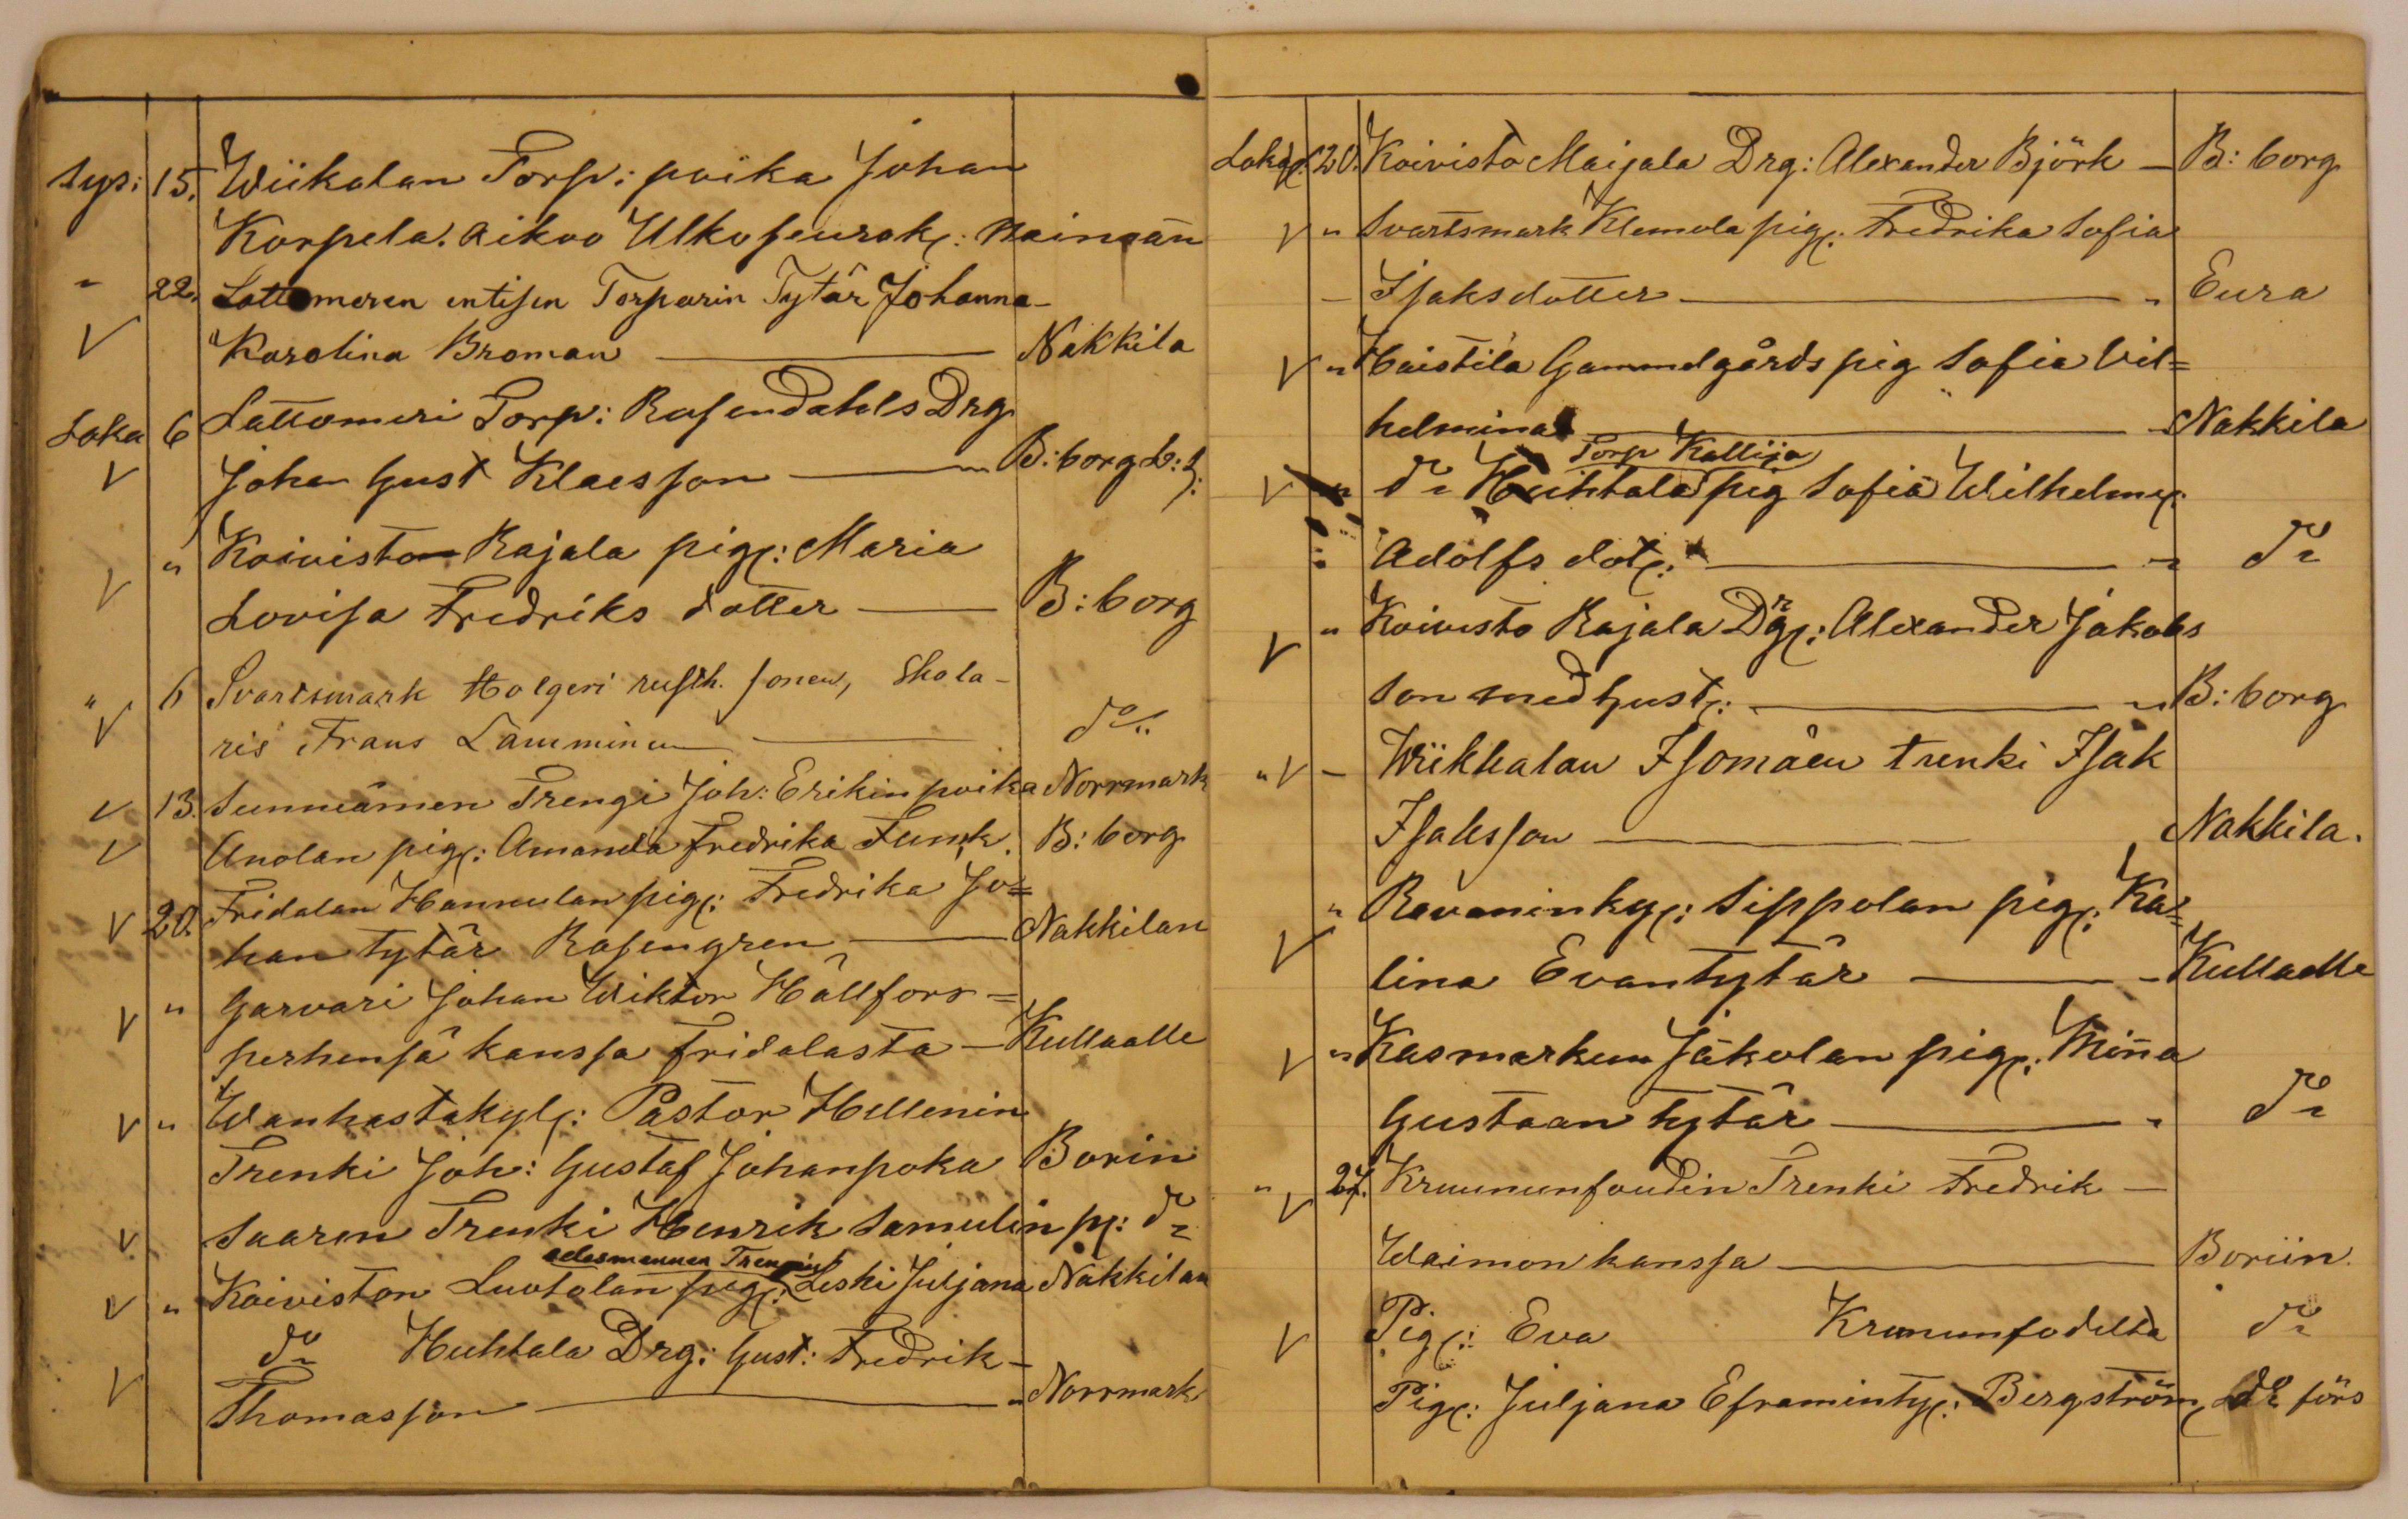 Sys: 15. Wiikalan Torp: poika Johan
Korpela. aikoo Ulkoseurak: Naimaan
" 22. Lattomeren entisen Torparin Tytär Johanna
V Karolina Broman — Nakkila
Loka 6 Lattomeri Torp: Rosendahls Drg
V Johan Gust Klaesson — B:borg L: f:
" Koivisto Rajala pig: Maria
V Lovisa Fredriks dotter — B: borg
" 6 Svartsmark Holgeri rusth. sonen, Skola-
V ris Frans Lamminen — do
V 13. Sunniämen Trengi Joh: Erikin poika Norrmark
V Anolan pig: Amanda Fredrika Funk. B: borg
V 20. Fridalan Hannulan pig: Fredrika Jo=
han tytär Rosengren — Nakkilan
V " Garvari Johan Wiktor Hällfors =
perhensä kanssa Fridalasta — Kullaalle
V " Wanhastakyl: Pastor Hellenin
Trenki Joh: Gustaf Johanpoka Borin
V Saaren Trenki Henrik Samulin p: do
edesmennen Trengin
V " Koiviston Luotolan pig: Leski Juljana Nakkilan
do Huhtala Drg: Gust: Fredrik —
V Thomasson — " Norrmark
Lokak: 20. Koivisto Maijala Drg: Alexander Björk — B: borg
V " Svartsmark Klemola pig: Fredrika Sofia
— Isaksdotter — " Eura
V " Haistila Gammelgårds pig Sofia Vil=
helmina — Nakkila
Torp Kallija
V " do Huhtala pig Sofia Wilhelm:
" Adolfs dot: — " do
V " Koivisto Rajala Drg: Alexander Jakobs
son med hust: — " B: borg
" V — Wiikkalan Isomäen trenki Isak
Isaksson — Nakkila.
" Ravaninky: Sippolan pig: Ka=
V lina Evantytär — Kullaalle
V " Kasmarkun Jäkolan pig: Miñna
Gustaan tytär — " do
" V 27. Kruununfoudin Trenki Fredrik —
Waimon kanssa — Boriin.
V Pig: Eva Krununfodilta do
Pig: Juljana Eframinty: Bergström, do förs